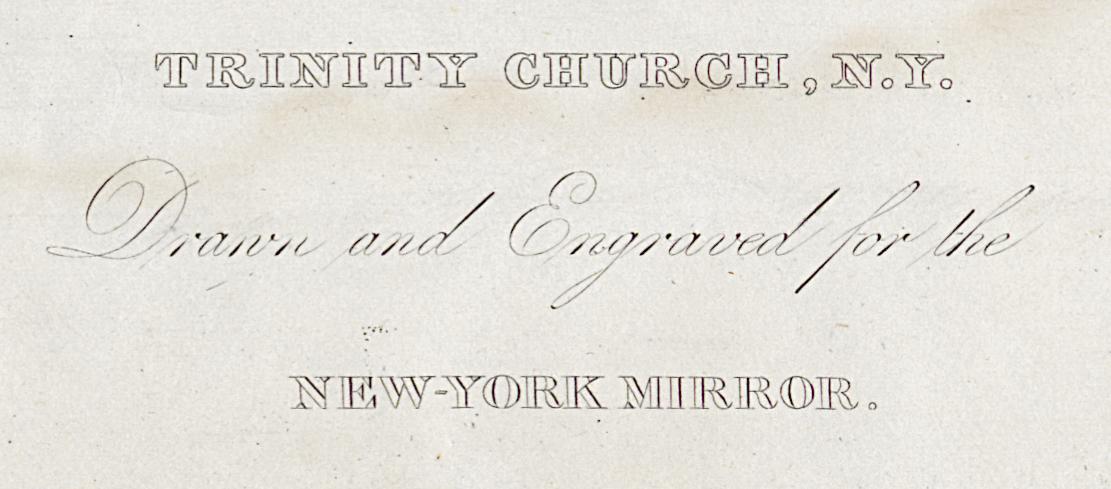 TRINITY CHURCH, N.Y.
Drawn and Engraved for the
NEW-YORK MIRROR.